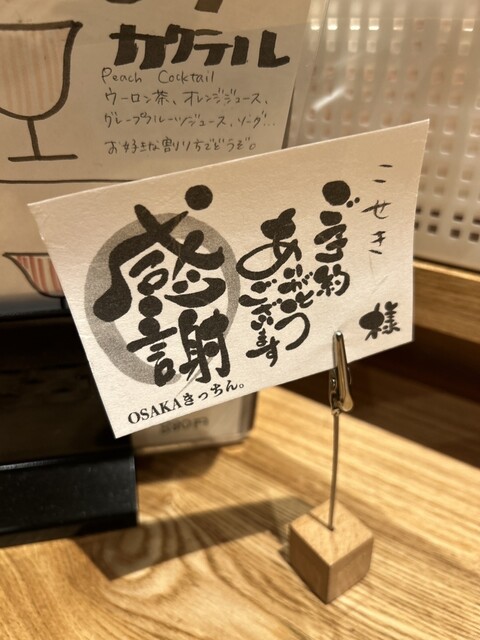 カクテル
Peach Cocktail
ウーロン茶、オレンジジュース、
グレープフルーツジュース、ソーダ...
お好きな割り方でどうぞ。
こせき 様
ご予約
ありがとう
ございます
感謝
OSAKAきっちん。